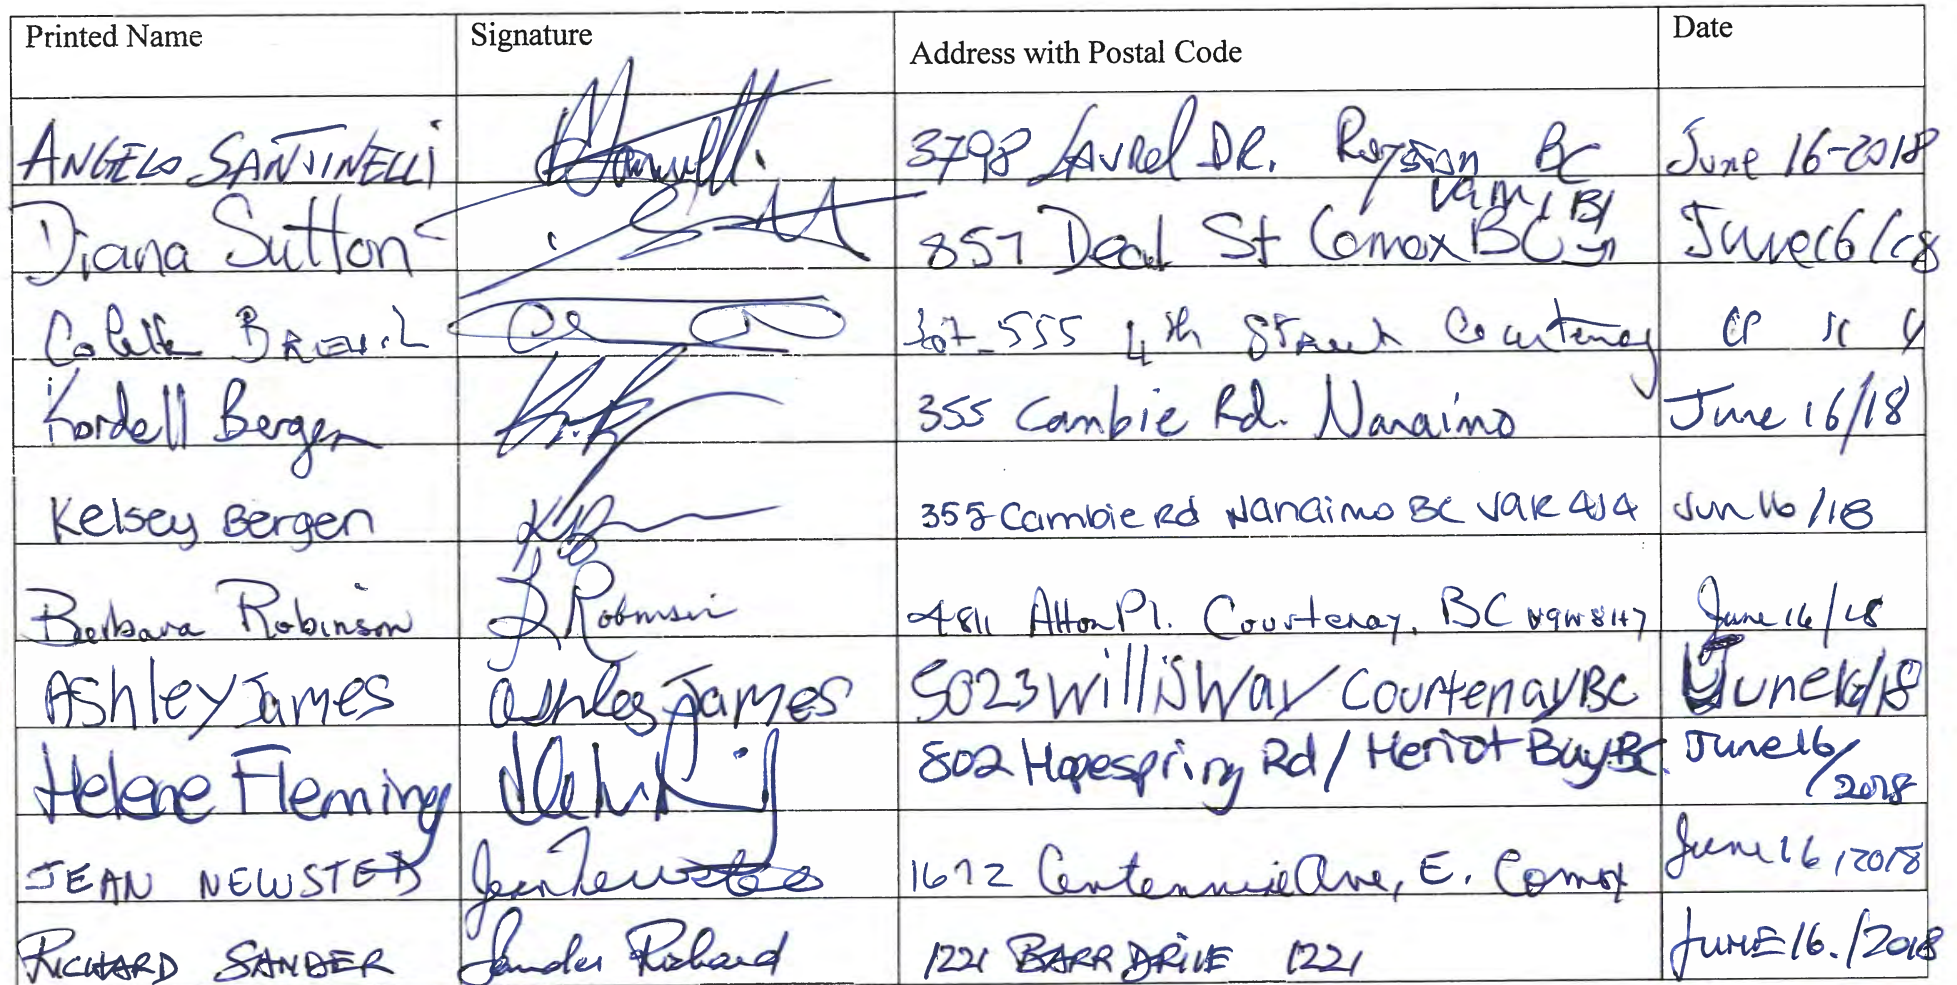 Printed Name Signature Address with Postal Code Date
ANGELO SANTINELLI 3798 LAUREL DR. Royston BC June 16-2018
Diana Sutton 857 Deal St Comox BC June 16/18
Colette 555 4th Street Courtenay
Kordell Bergen 355 Cambie Rd. Nanaimo June 16/18
Kelsey Bergen 355 Cambie Rd Nanaimo BC Jun 16/18
Barbara Robinson B Robinson 4811 Alton Pl. Courtenay, BC V9N 8H7 June 16/18
Ashley James Ashley James 5023 Willis Way Courtenay BC June 16/18
Helene Fleming 802 Hopespring Rd / Heriot Bay BC. June 16/
2018
JEAN NEWSTED Jean Newsted 1672 Centennial Ave, E. Comox June 16, 2018
RICHARD SANDER Sander Richard 1221 BARR DRIVE 1221 JUNE 16./2018